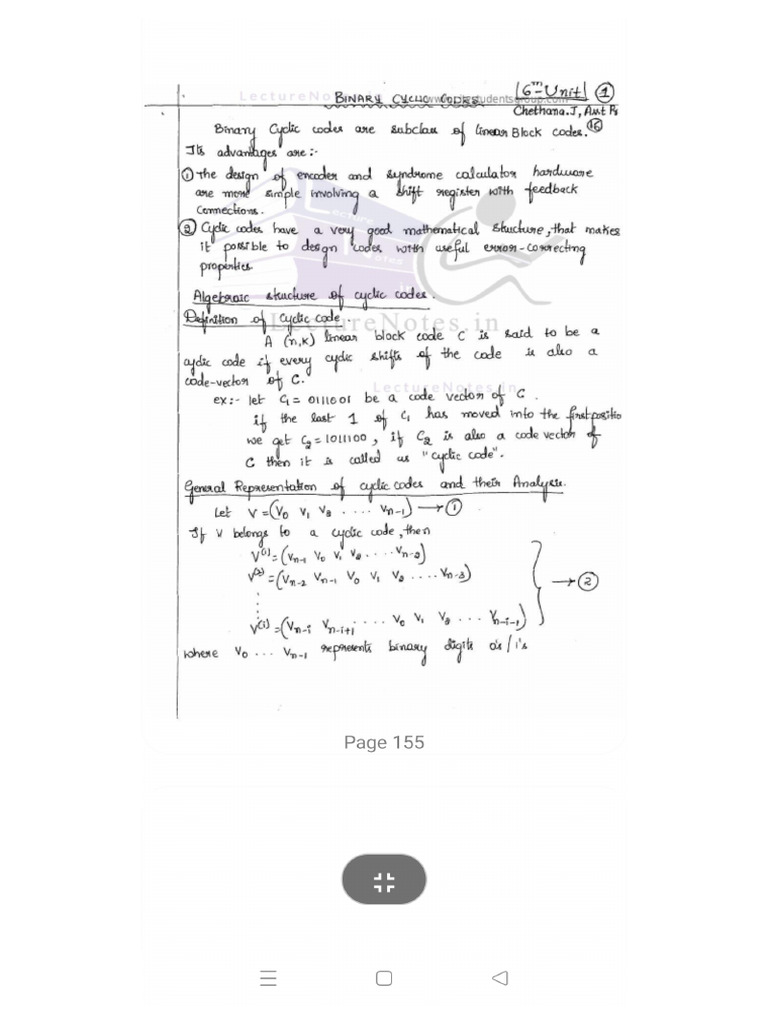 LectureNotes.in
BINARY CYCLIC CODES
6th-Unit 1
Chethana.J, Asst Pr
Binary Cyclic codes are subclass of linear Block codes. 16
It's advantages are:-
① the design of encoder and syndrome calculator hardware
are more simple involving a shift register with feedback
connections.
② Cyclic codes have a very good mathematical structure, that makes
it possible to design codes with useful error-correcting
properties
Algebraic structure of cyclic codes.
Definition of cyclic code
LectureNotes.in
A (n,k) linear block code C is said to be a
cyclic code if every cyclic shifts of the code is also a
code-vector of C.
LectureNotes.in
ex:- let C₁ = 0111001 be a code vector of C.
if the last 1 of C₁ has moved into the first positio
we get C₂ = 1011100, if C₂ is also a code vector of
C then it is called as "cyclic code".
General Representation of cyclic codes and their Analysis.
Let V = (V₀ V₁ V₂ .... Vn-1) → ①
If V belongs to a cyclic code, then
V⁽¹⁾ = (Vn-1 V₀ V₁ V₂ .... Vn-2)
V⁽²⁾ = (Vn-2 Vn-1 V₀ V₁ V₂ .... Vn-3) → ②
V⁽ⁱ⁾ = (Vn-i Vn-i+1 .... V₀ V₁ V₂ ... Vn-i-1)
where V₀ ... Vn-1 represents binary digits 0's/1's
Page 155